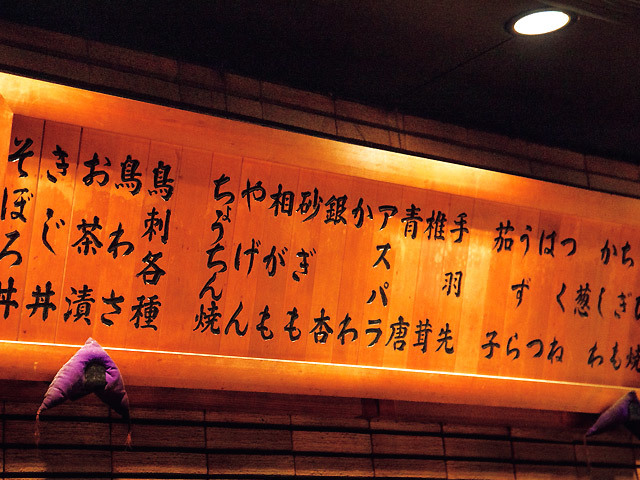 ちぎも
かしわ
葱
つくね
はつ
うずら
茄子
手羽先
椎茸
青唐
アスパラ
かわ
銀杏
砂ぎも
相がも
やげん
ちょうちん焼
鳥刺各種
鳥わさ
お茶漬
きじ丼
そぼろ丼